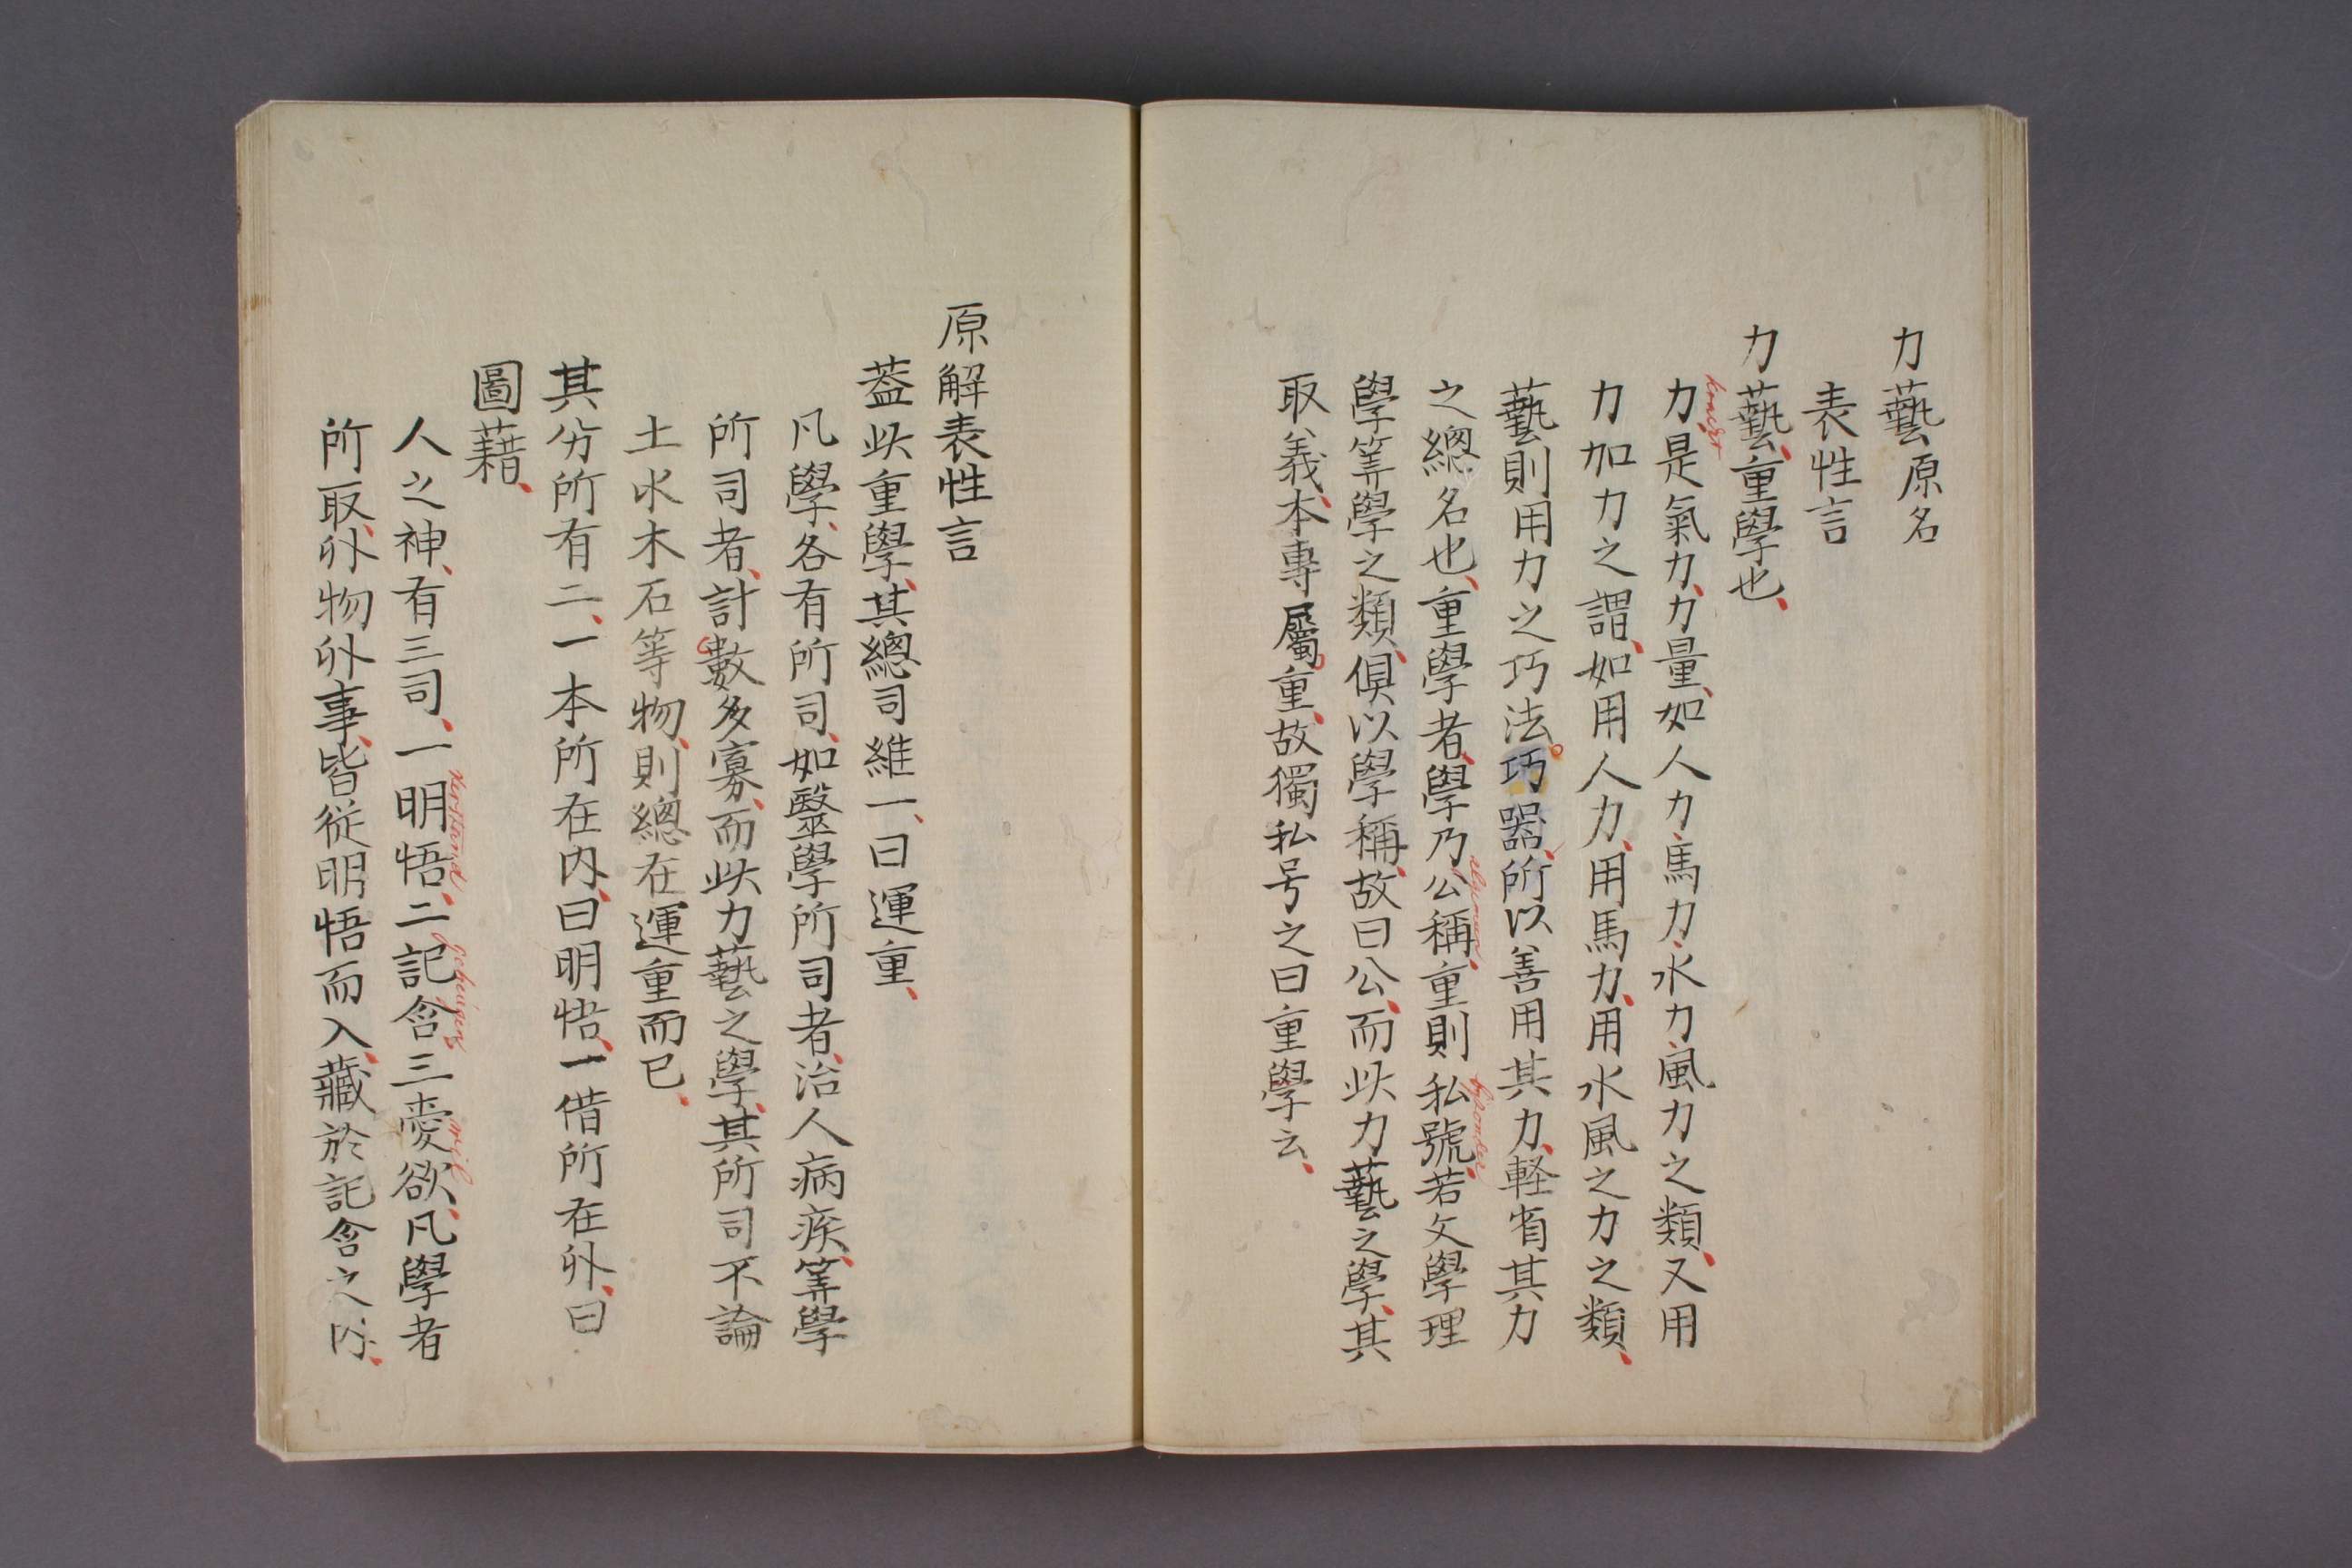 力藝原名
表性言
力藝、重學也、
kracht
力是氣力、力量、如人力馬力水力風力之類、又用
力加力之謂、如用人力、用馬力、用水風之力之類、
藝則用力之巧法。巧器、所以善用其力、軽省其力
之總名也、重學者、學乃公稱、重則私號、若文學理
algemeen
byzonder
學筭學之類、俱以學稱、故曰公、而此力藝之學、其
取義、本專屬重、故獨私号之曰重學云、
原解表性言
葢此重學、其總司維一、曰運重、
凡學、各有所司、如毉學所司者、治人病疾、筭學
所司者、計數多寡、而此力藝之學、其所司不論
土水木石等物、則總在運重而已、
其分所有二、一本所在内、曰明悟、一借所在外、曰
圖藉、
人之神、有三司、一明悟、二記含、三愛欲、凡學者
Verstand
geheugen
wil
所取外物外事、皆從明悟而入、藏於記含之内、